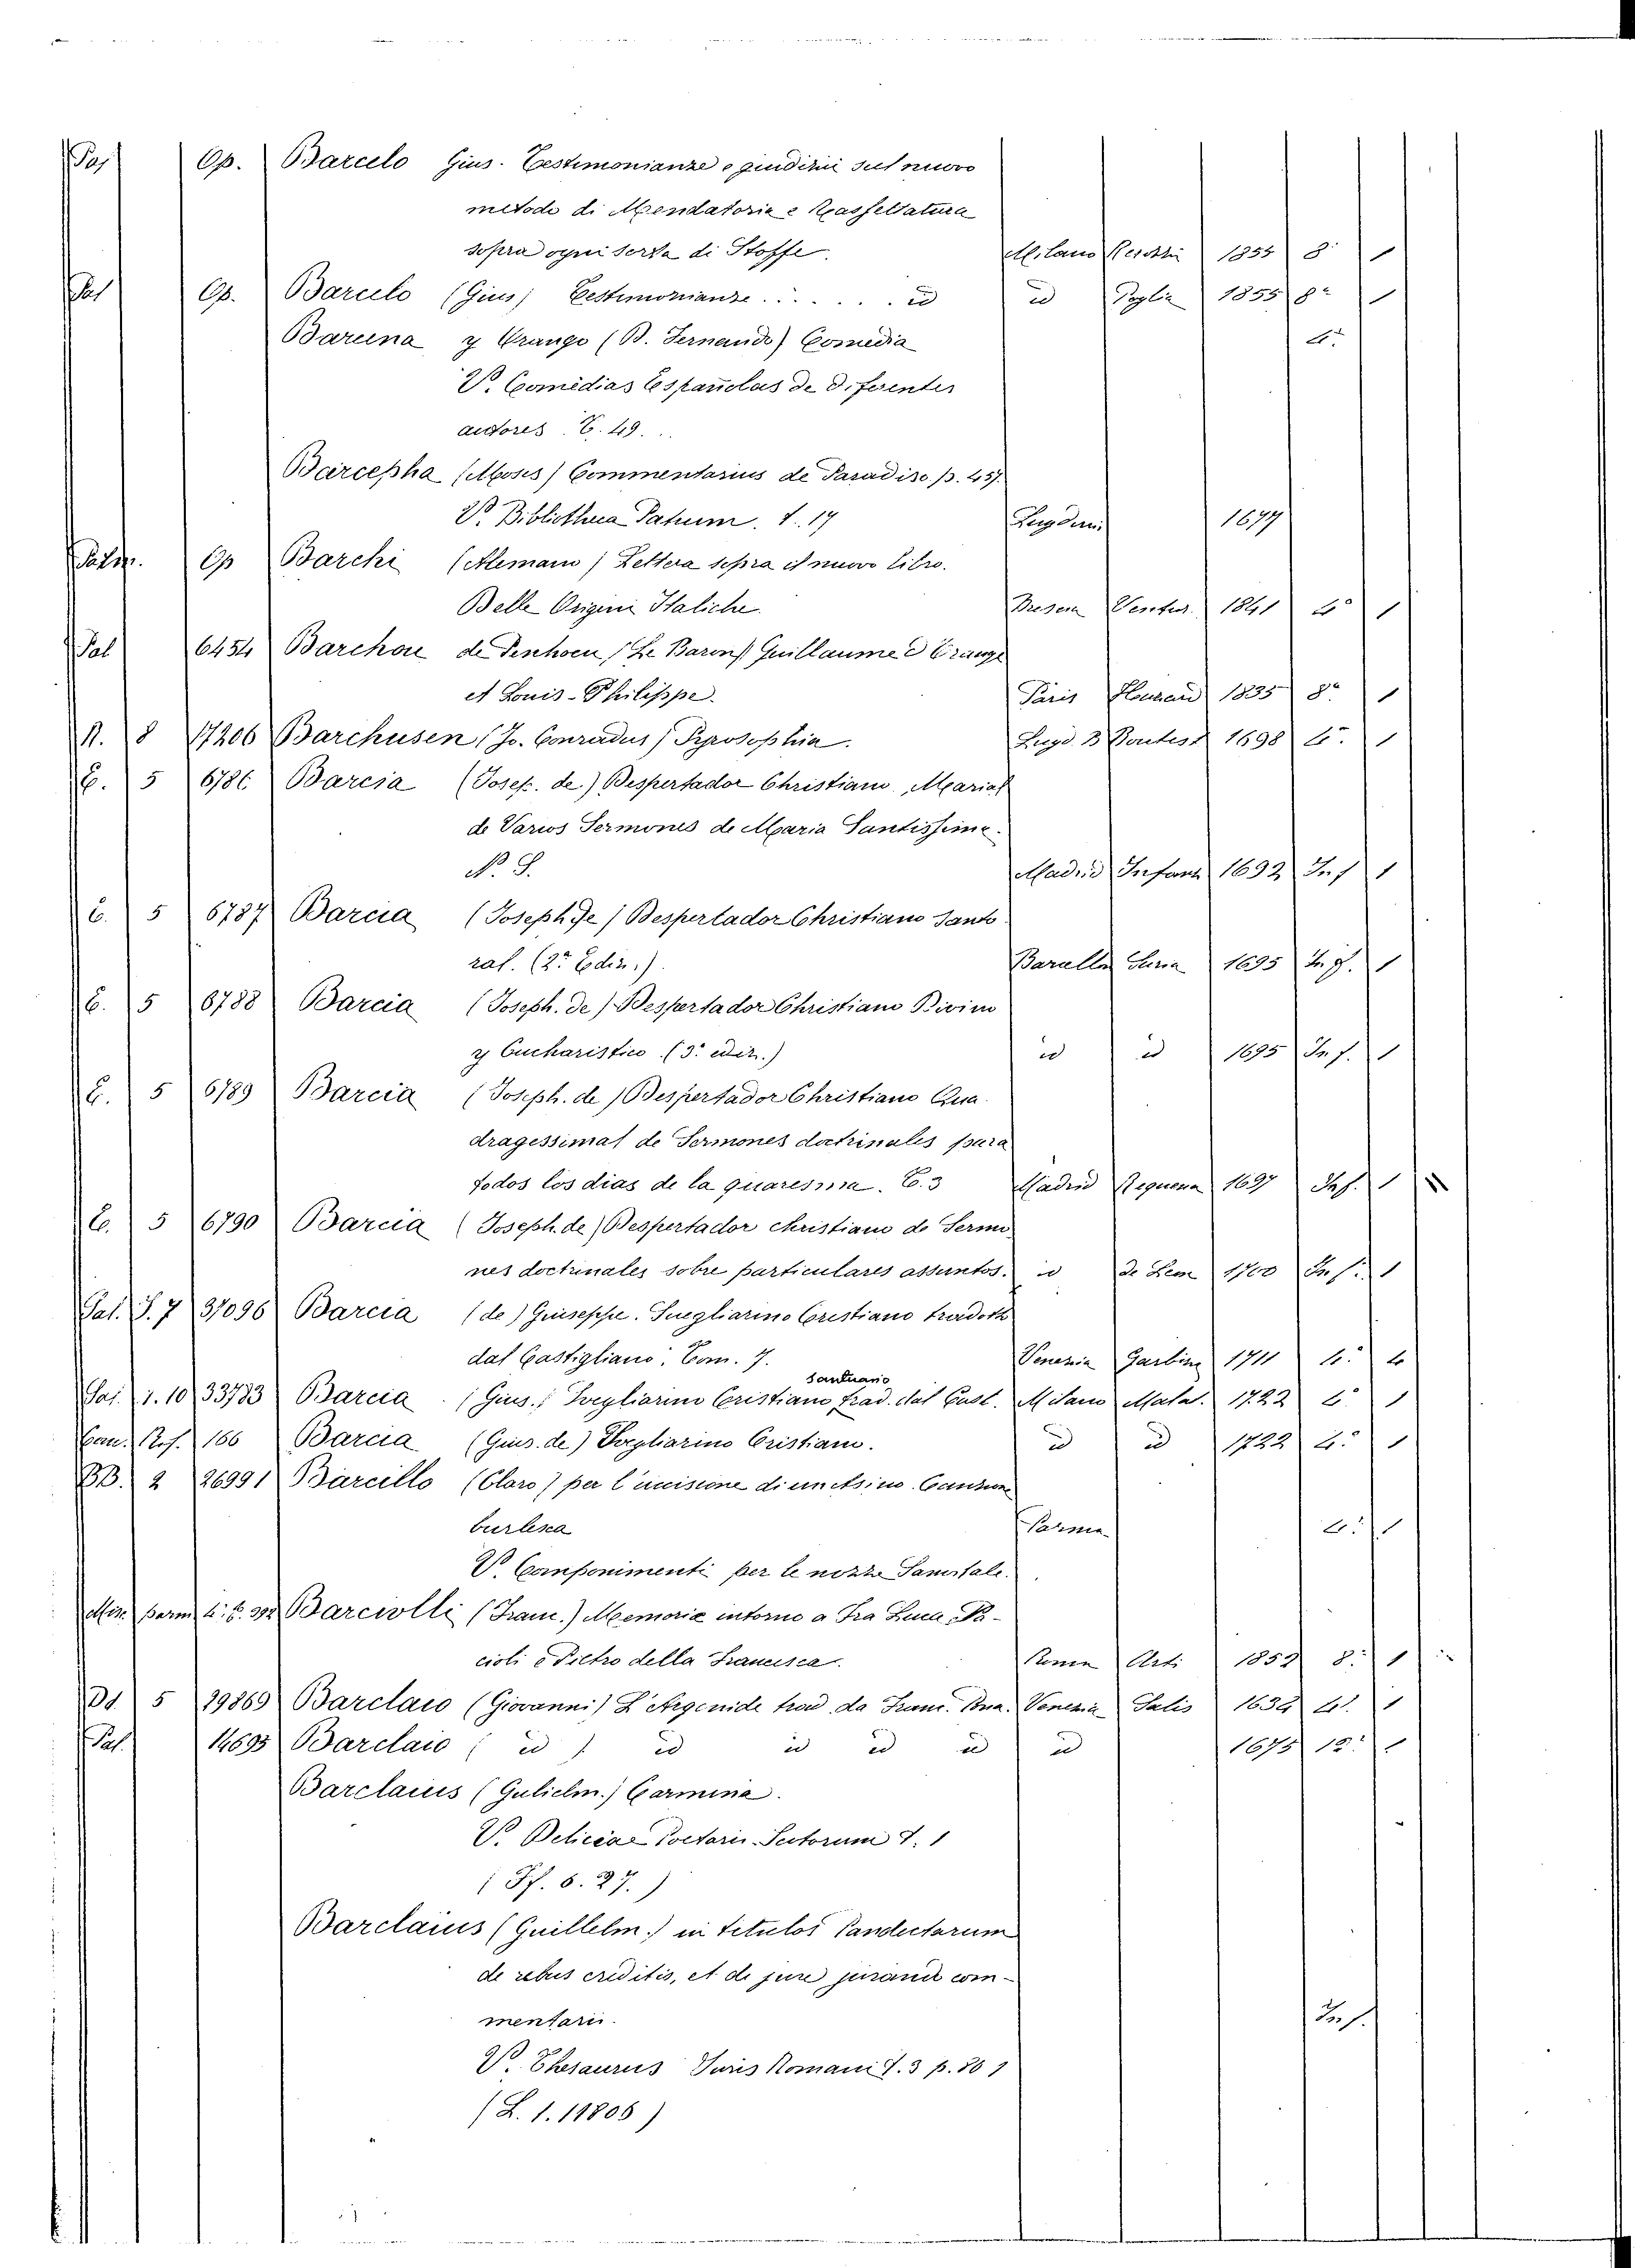 Pal Op. Barcelo Gius. Testimonianze e giudizii sul nuovo
metodo di Mendatoria e Rassettatura
sopra ogni sorta di Stoffe. Milano 1854 8° 1
Pal Op. Barcelo (Gius) Testimonianze . . . . . . id id Poglia 1855 8° 1
Barcena y Orango (B. Fernando) Comedia 4°
V. Comedias Espanolas de diferentes
autores T. 49. . .
Barcepha (Moses) Commentarius de Paradiso p. 457.
V. Bibliotheca Patrum. t. 17 Lugduni 1677
Palat. Op Barchi (Alemano) Lettera sopra il nuovo libro.
Delle Origini Italiche. Brescia Ventur. 1841 1
Pal 6454 Barchou de Penhoen (Le Baron) Guillaume d'Orange
et Louis-Philippe. Paris 1835 8° 1
N. 8 17206 Barchusen (Jo. Conradus) Pyrosophia. Lugd. B Boutest 1698 4° 1
E. 5 6786 Barcia (Josef. de) Despertador Christiano, Marial
de Varios Sermones de Maria Santissime.
N. S. Madrid Infanz 1692 In f 1
E. 5 6787 Barcia (Joseph de) Despertador Christiano Santo
ral. (2ª Ediz.). 1695 In f. 1
E. 5 6788 Barcia (Joseph. de) Despertador Christiano Divino
y Eucharistico (3ª ediz.) id id 1695 In f. 1
E. 5 6789 Barcia (Joseph. de) Despertador Christiano Qua
dragessimal de Sermones doctrinales para
todos los dias de la quaresma. T. 3 Madrid Requena 1697 In f. 1
E. 5 6790 Barcia (Joseph. de) Despertador christiano de Sermo
nes doctrinales sobre particulares assuntos. id De Lem 1700 In f. 1
Pal. S. 7 37096 Barcia (de) Giuseppe. Svegliarino Cristiano tradotto
dal Castigliano. Tom. 7. Venezia Garbizza 1711 4° 4
Santuario
Pal. i. 10 33783 Barcia (Gius.) Svegliarino Cristiano trad. dal Cast. Milano Malat. 1722 1
Prof. 166 Barcia (Gius. de) Svegliarino Cristiano. id id 1722 4° 1
BB. 2 26991 Barcillo (Claro) per l'uccisione di un Asino. Canzone
burlesca Parma 4° 1
V. Componimenti per le nozze Sanvitale.
Misc. parm. 4° T. 392 Barciolli (Franc.) Memorie intorno a Fra Luca Pa-
cioli e Pietro della Francesca. Roma Arti 8° 1
Dd 5 29869 Barclaio (Giovanni) L'Argenide trad. da Franc. Pona. Venezia Salis 1634 4°. 1
Pal. 14695 Barclaio ( id ) id id id id id 1675 12° 1
Barclaius (Gulielm.) Carmina.
V. Deliciae Poetaru Scotorum t. 1
(Ff. 6. 27.)
Barclaius (Guillelm.) in titulos Pandectarum
de rebus creditis, et de jure jurand com-
mentarii. In f.
V. Thesaurus Juris Romani t. 3 p. 801
(L. 1. 11806)